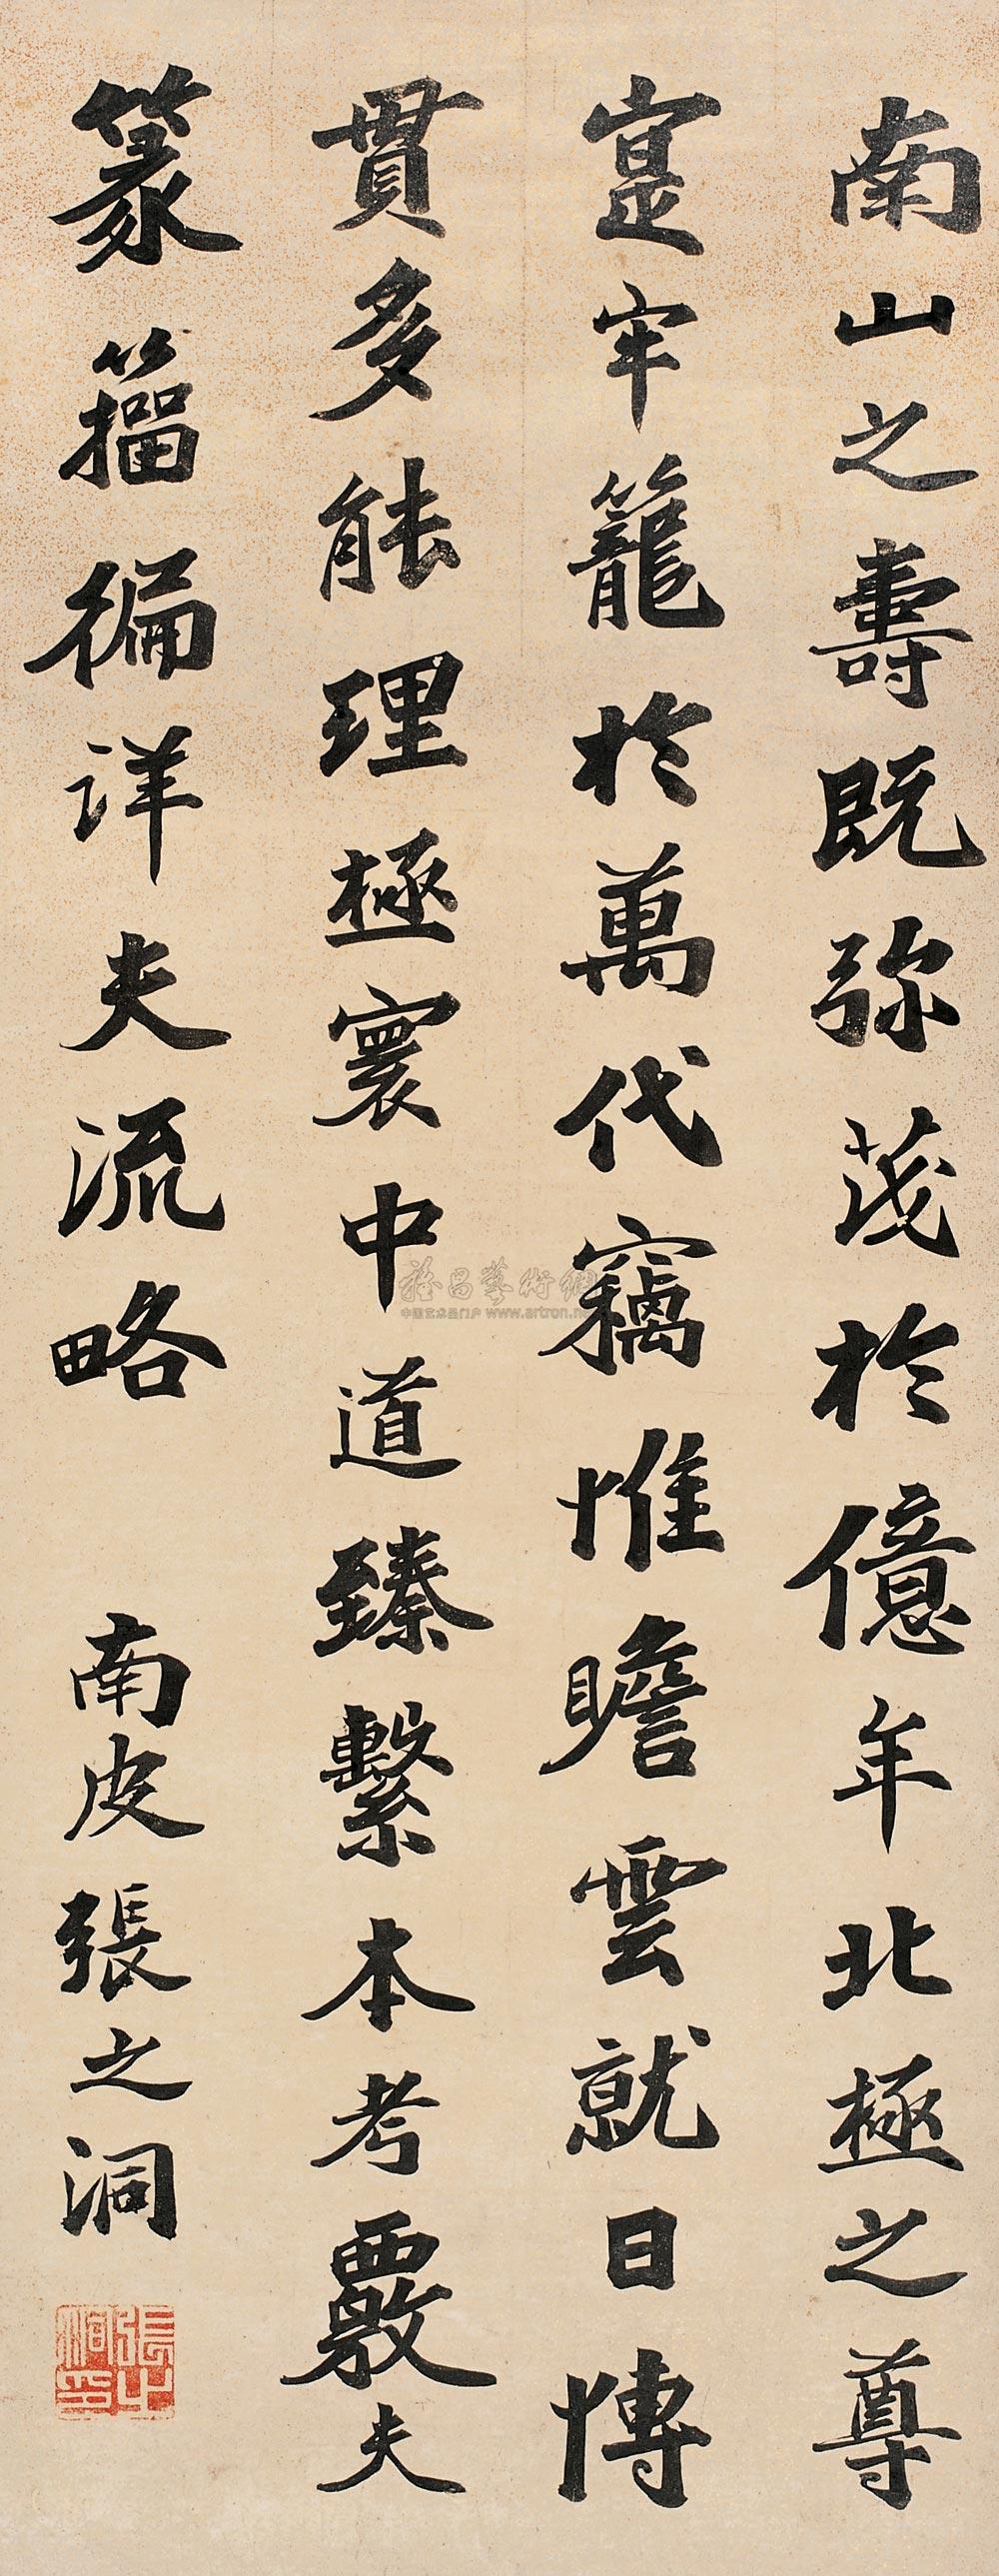 南山之壽既弥茂於億年北極之尊
寔牢籠於萬代竊惟瞻雲就日博
貫多能理極寰中道臻繫本考覈夫
篆籀徧詳夫流略
南皮張之洞
張之洞印
中国艺术品门户 www.artron.net